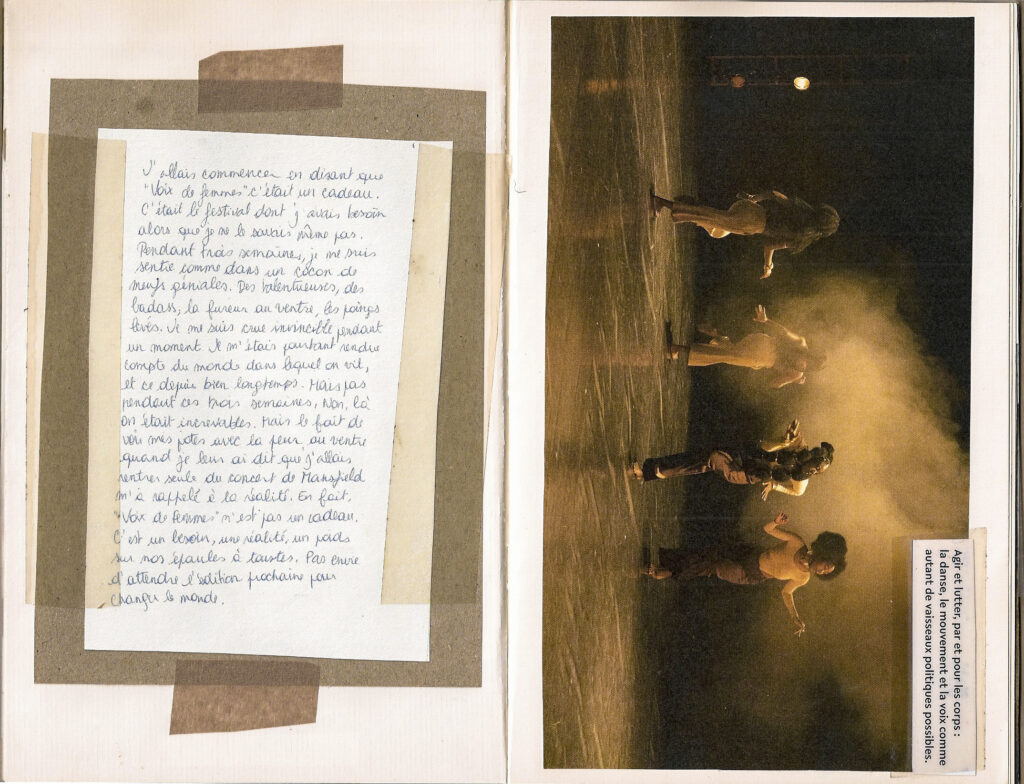 J'allais commencer en disant que
"Voix de femmes" c'était un cadeau.
C'était le festival dont j'avais besoin
alors que je ne le savais même pas.
Pendant trois semaines, je me suis
sentie comme dans un cocon de
meufs géniales. Des talentueuses, des
badass, la fureur au ventre, les poings
levés. Je me suis crue invincible pendant
un moment. Je m'étais pourtant rendue
compte du monde dans lequel on vit,
et ce depuis bien longtemps. Mais pas
pendant ces trois semaines. Non, là
on était increvables. Mais le fait de
voir mes potes avec la peur au ventre
quand je leur ai dit que j'allais
rentrer seule du concert de Mansfield
m'a rappelé à la réalité. En fait,
"Voix de femmes" n'est pas un cadeau.
C'est un besoin, une réalité, un poids
sur nos épaules à toustes. Pas envie
d'attendre l'édition prochaine pour
changer le monde.
Agir et lutter, par et pour les corps :
la danse, le mouvement et la voix comme
autant de vaisseaux politiques possibles.